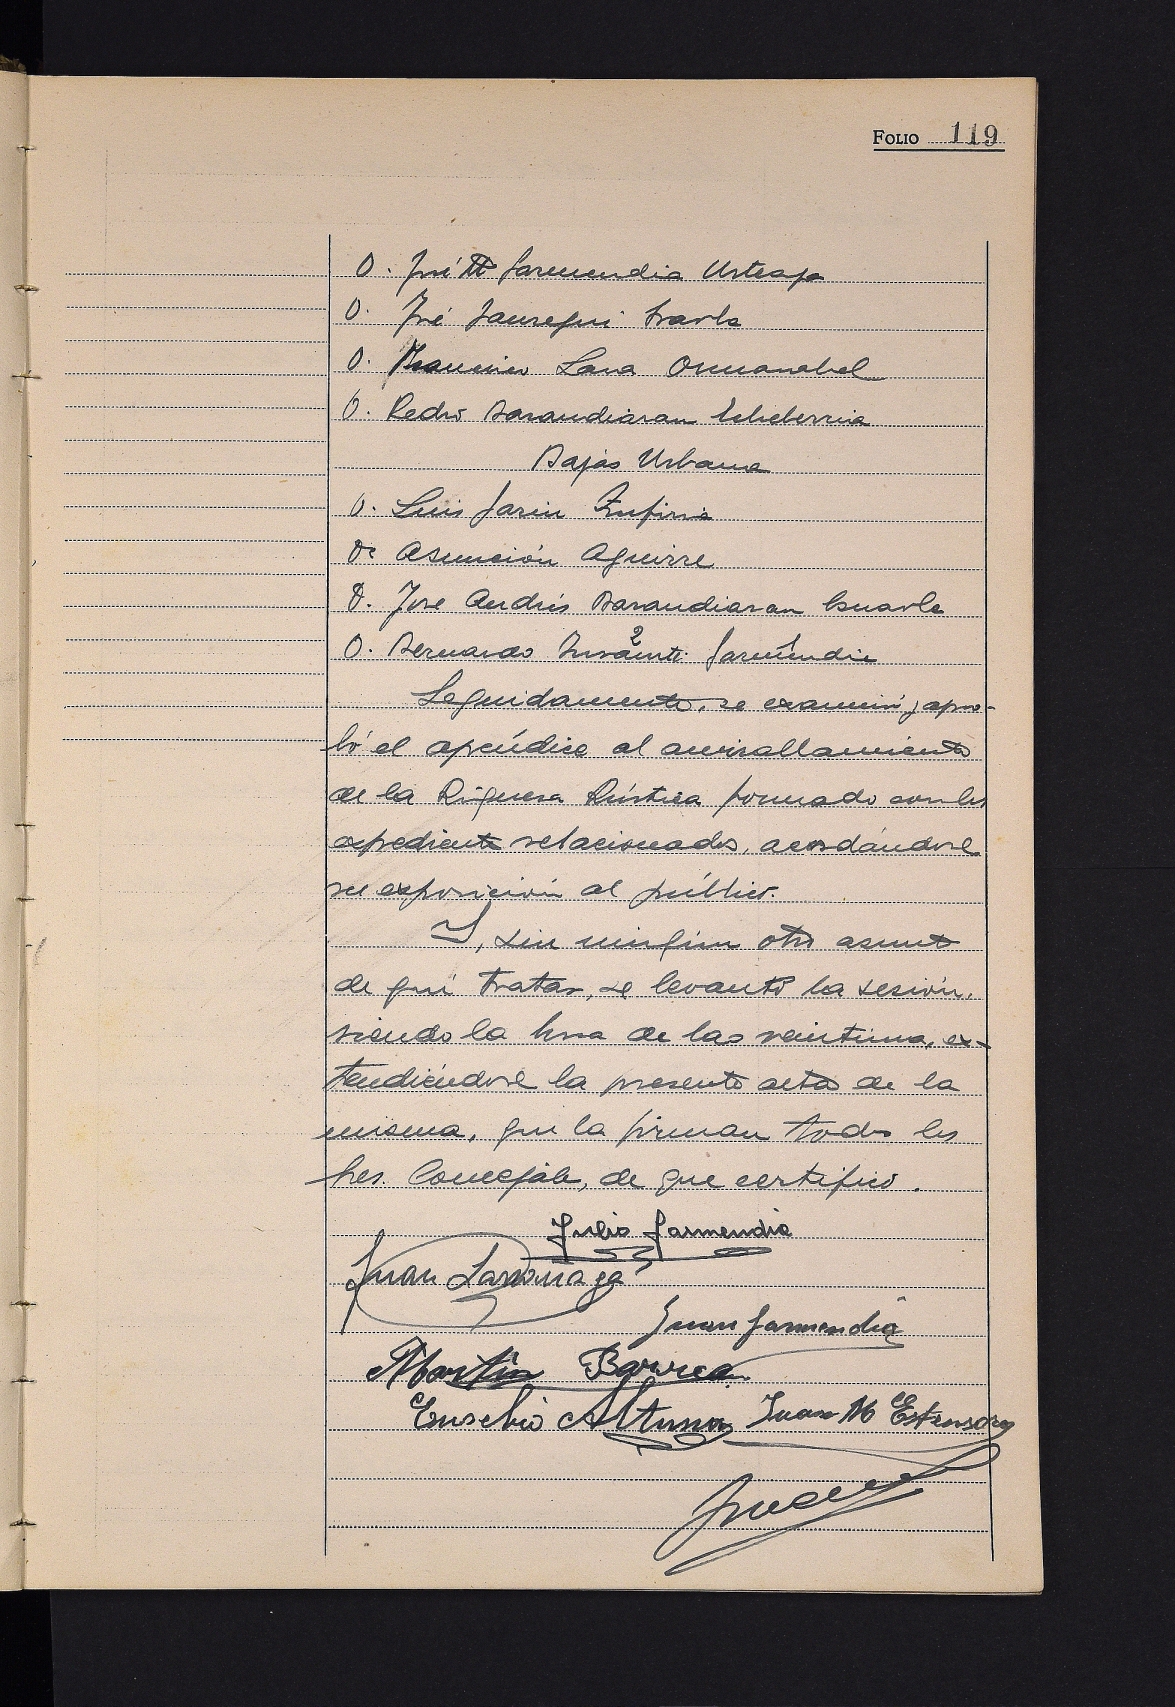 FOLIO 119
D. José M Garmendia Urteaga
D. José Jauregui Iraola
D. Francisco Lasa Ormazabal
D. Pedro Barandiaran Echeberria
Bajas Urbana
D. Luis Garin
Dª Asunción Aguirre
D. Jose Andrés Barandiaran
D. Bernardo Garmendia
Seguidamente, se examinó y apro-
bó el apéndice al amirallamiento
de la Riqueza Rústica formado con los
expedientes relacionados, acordándose
su exposición al público.
Y, sin ningún otro asunto
de que tratar, se levantó la sesión,
siendo la hora de las veintiuna, ex-
tendiéndose la presente acta de la
misma, que la firman todos los
Sres. Concejales, de que certifico.
Julio Garmendia
Juan Larrañaga
Juan Garmendia
Martin Barrea
Eusebio Altuna Juan M Estensoro